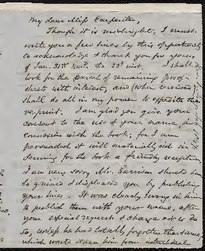 My dear Miss Carpenter,
Though it is midnight, I must
write you a few lines by this opportunity
to acknowledge & thank you for yours
of Jan. 31st rec'd the 23d inst. I shall
look for the parcel of remaining proof-
sheet with interest, and (when received)
shall do all in my power to expedite the
reprint. I am glad you give your
consent to the use of your name in
connexion with the book; for I am
persuaded it will materially aid in
securing for the book a friendly reception.
I am very sorry Mr. Garrison should
have grieved & displeased you by publishing
yours. It was clearly wrong in him
to publish them with your name, after
your especial request & charge not to do
so, unless he had totally forgotten that
which wrote down him from